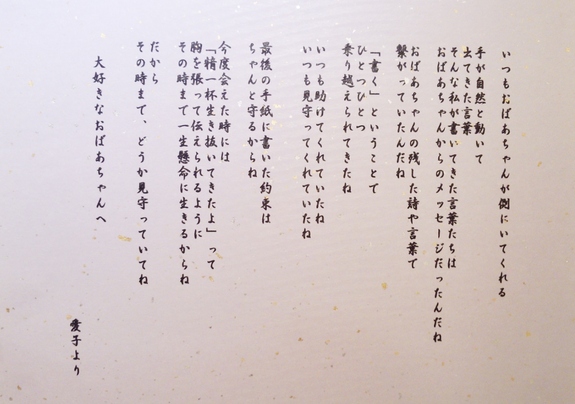 いつもおばあちゃんが側にいてくれる
手が自然と動いて
出てきた言葉
そんな私が書いてきた言葉たちは
おばあちゃんからのメッセージだったんだね
おばあちゃんの残した詩や言葉で
繋がっていたんだね
「書く」ということで
ひとつひとつ
乗り越えられてきたね
いつも助けてくれていたね
いつも見守ってくれていたね
最後の手紙に書いた約束は
ちゃんと守るからね
今度会えた時には
「精一杯生き抜いてきたよ」って
胸を張って伝えられるように
その時まで一生懸命に生きるからね
だから
その時まで、どうか見守っていてね
大好きなおばあちゃんへ
愛子より